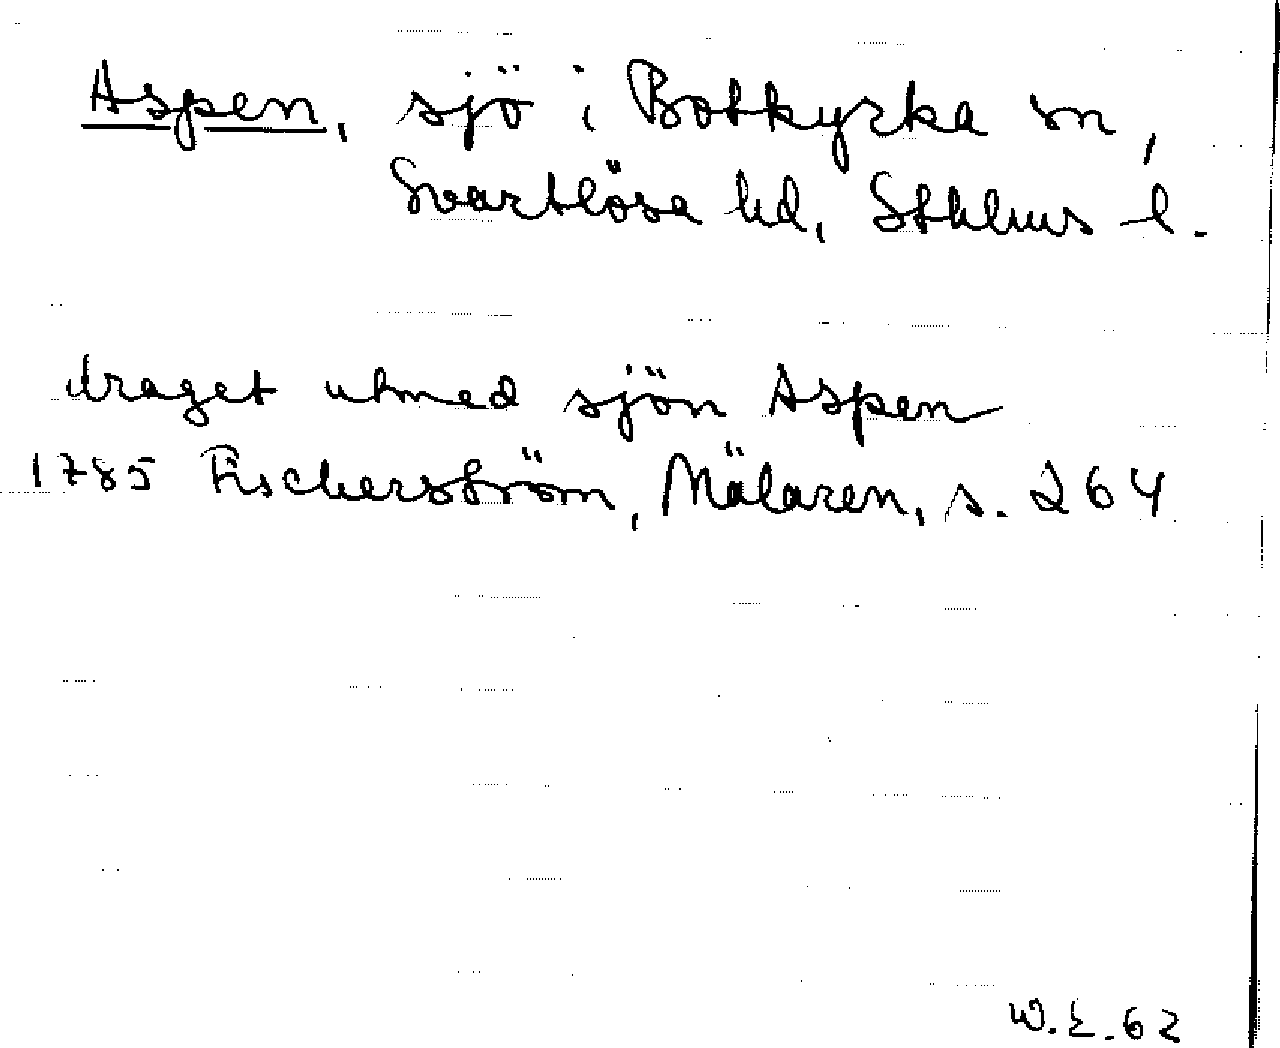 Aspen, sjö i Botkyrka sn,
Svartlösa hd, Sthlms l.
draget utmed sjön Aspen
1785 Fischerström, Mälaren, s. 264
W.E. 62